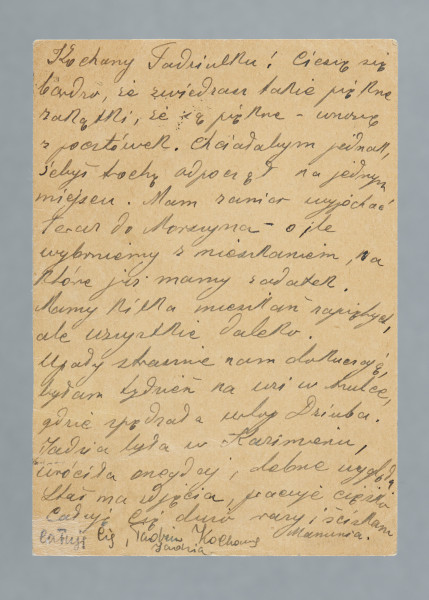 Kochany Tadziulku! Cieszę się
bardzo, że zwiedzasz takie piękne
zakątki, że są piękne - wnoszę
z pocztówek. Chciałabym jednak,
żebyś trochę odpoczął na jednym
miejscu. Mam zamiar wyjechać
teraz do Morszyna - o ile
wybrniemy z mieszkaniem, na
które już mamy zadatek.
Mamy kilka mieszkań
ale wszystkie daleko.
Upały strasznie nam dokuczają,
byłam tydzień na wsi w
gdzie spędzała urlop Dziuba.
Jadzia była w Kazimierzu,
wróciła onegdaj, dobrze wygląda
Staś ma zdjęcia, pracuje ciężko
Całuję Cię dużo razy i ściskam
Mamunia.
całuję Cię, Tadziu Kochany
Jadzia